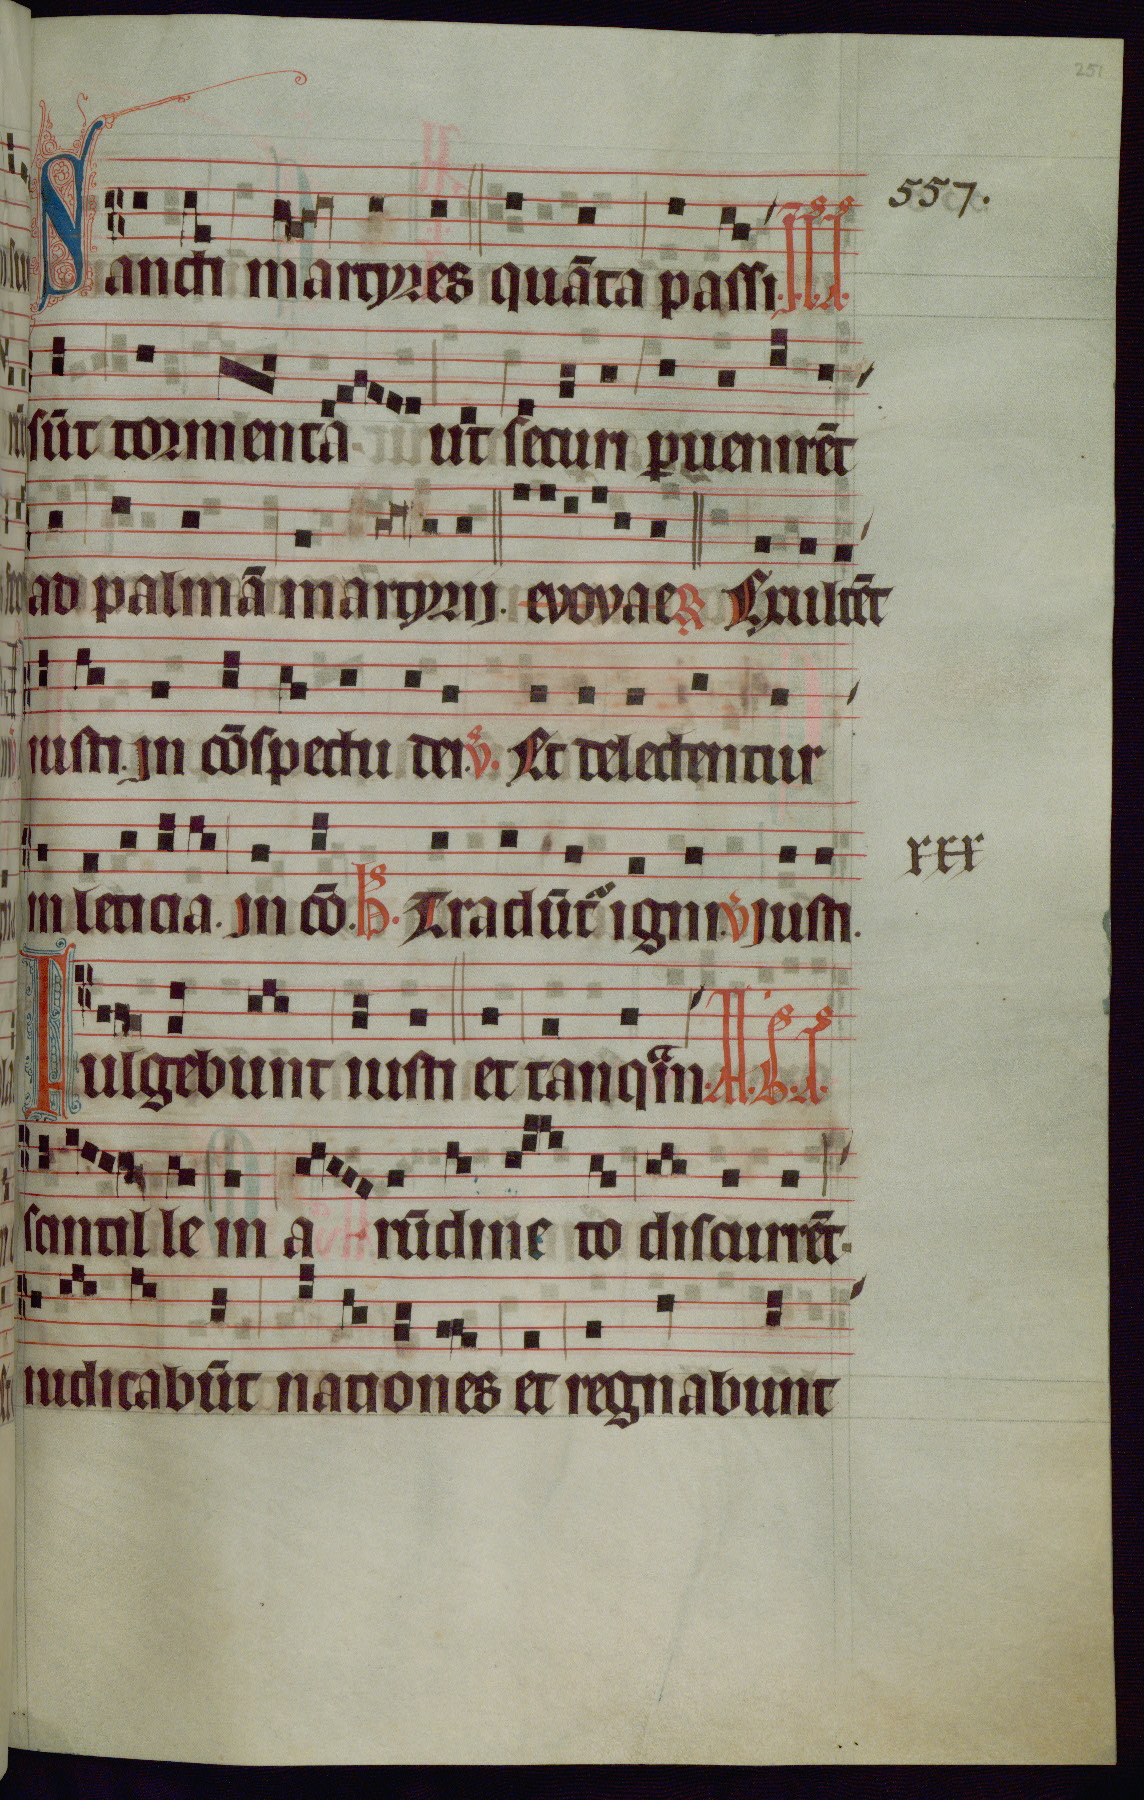 251
557.
Sancti martyres quāta passi
sūt tormenta ut securi puenirēt
ad palmā martyrij. evovae R Exultēt
iusti. in cōspectu dei. V. Et delectentur
in leticia. in cō. Tradūt igni V iusti.
xxx
Fulgebunt iusti et tanqᵃm
scintille in arūdineto discurrēt.
iudicabūt nationes et regnabunt